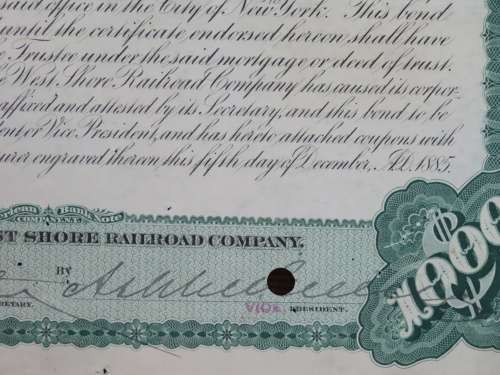 said office in the City of New York. This bond
until the certificate, endorsed hereon shall have
Trustee under the said mortgage or deed of trust.
West Shore Railroad Company has caused its corpor-
affixed and attested by its Secretary, and this bond to be
or Vice President, and has hereto attached coupons with
surer engraved thereon this fifth day of December, A.D. 1885.
American Bank Note
COMPANY N.Y.
ST SHORE RAILROAD COMPANY.
BY
VICE PRESIDENT.
RETARY.
$1000